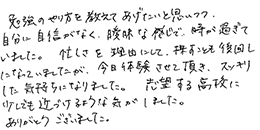 勉強のやり方を教えてあげたいと思いつつ、
自分に自信がなく、曖昧な感じで、時が過ぎて
いました。忙しさを理由にして、押すことも後回し
になっていましたが、今日体験させて頂き、スッキリ
した気持ちになりました。志望する高校に
少しでも近づけるような気がしました。
ありがとうございました。